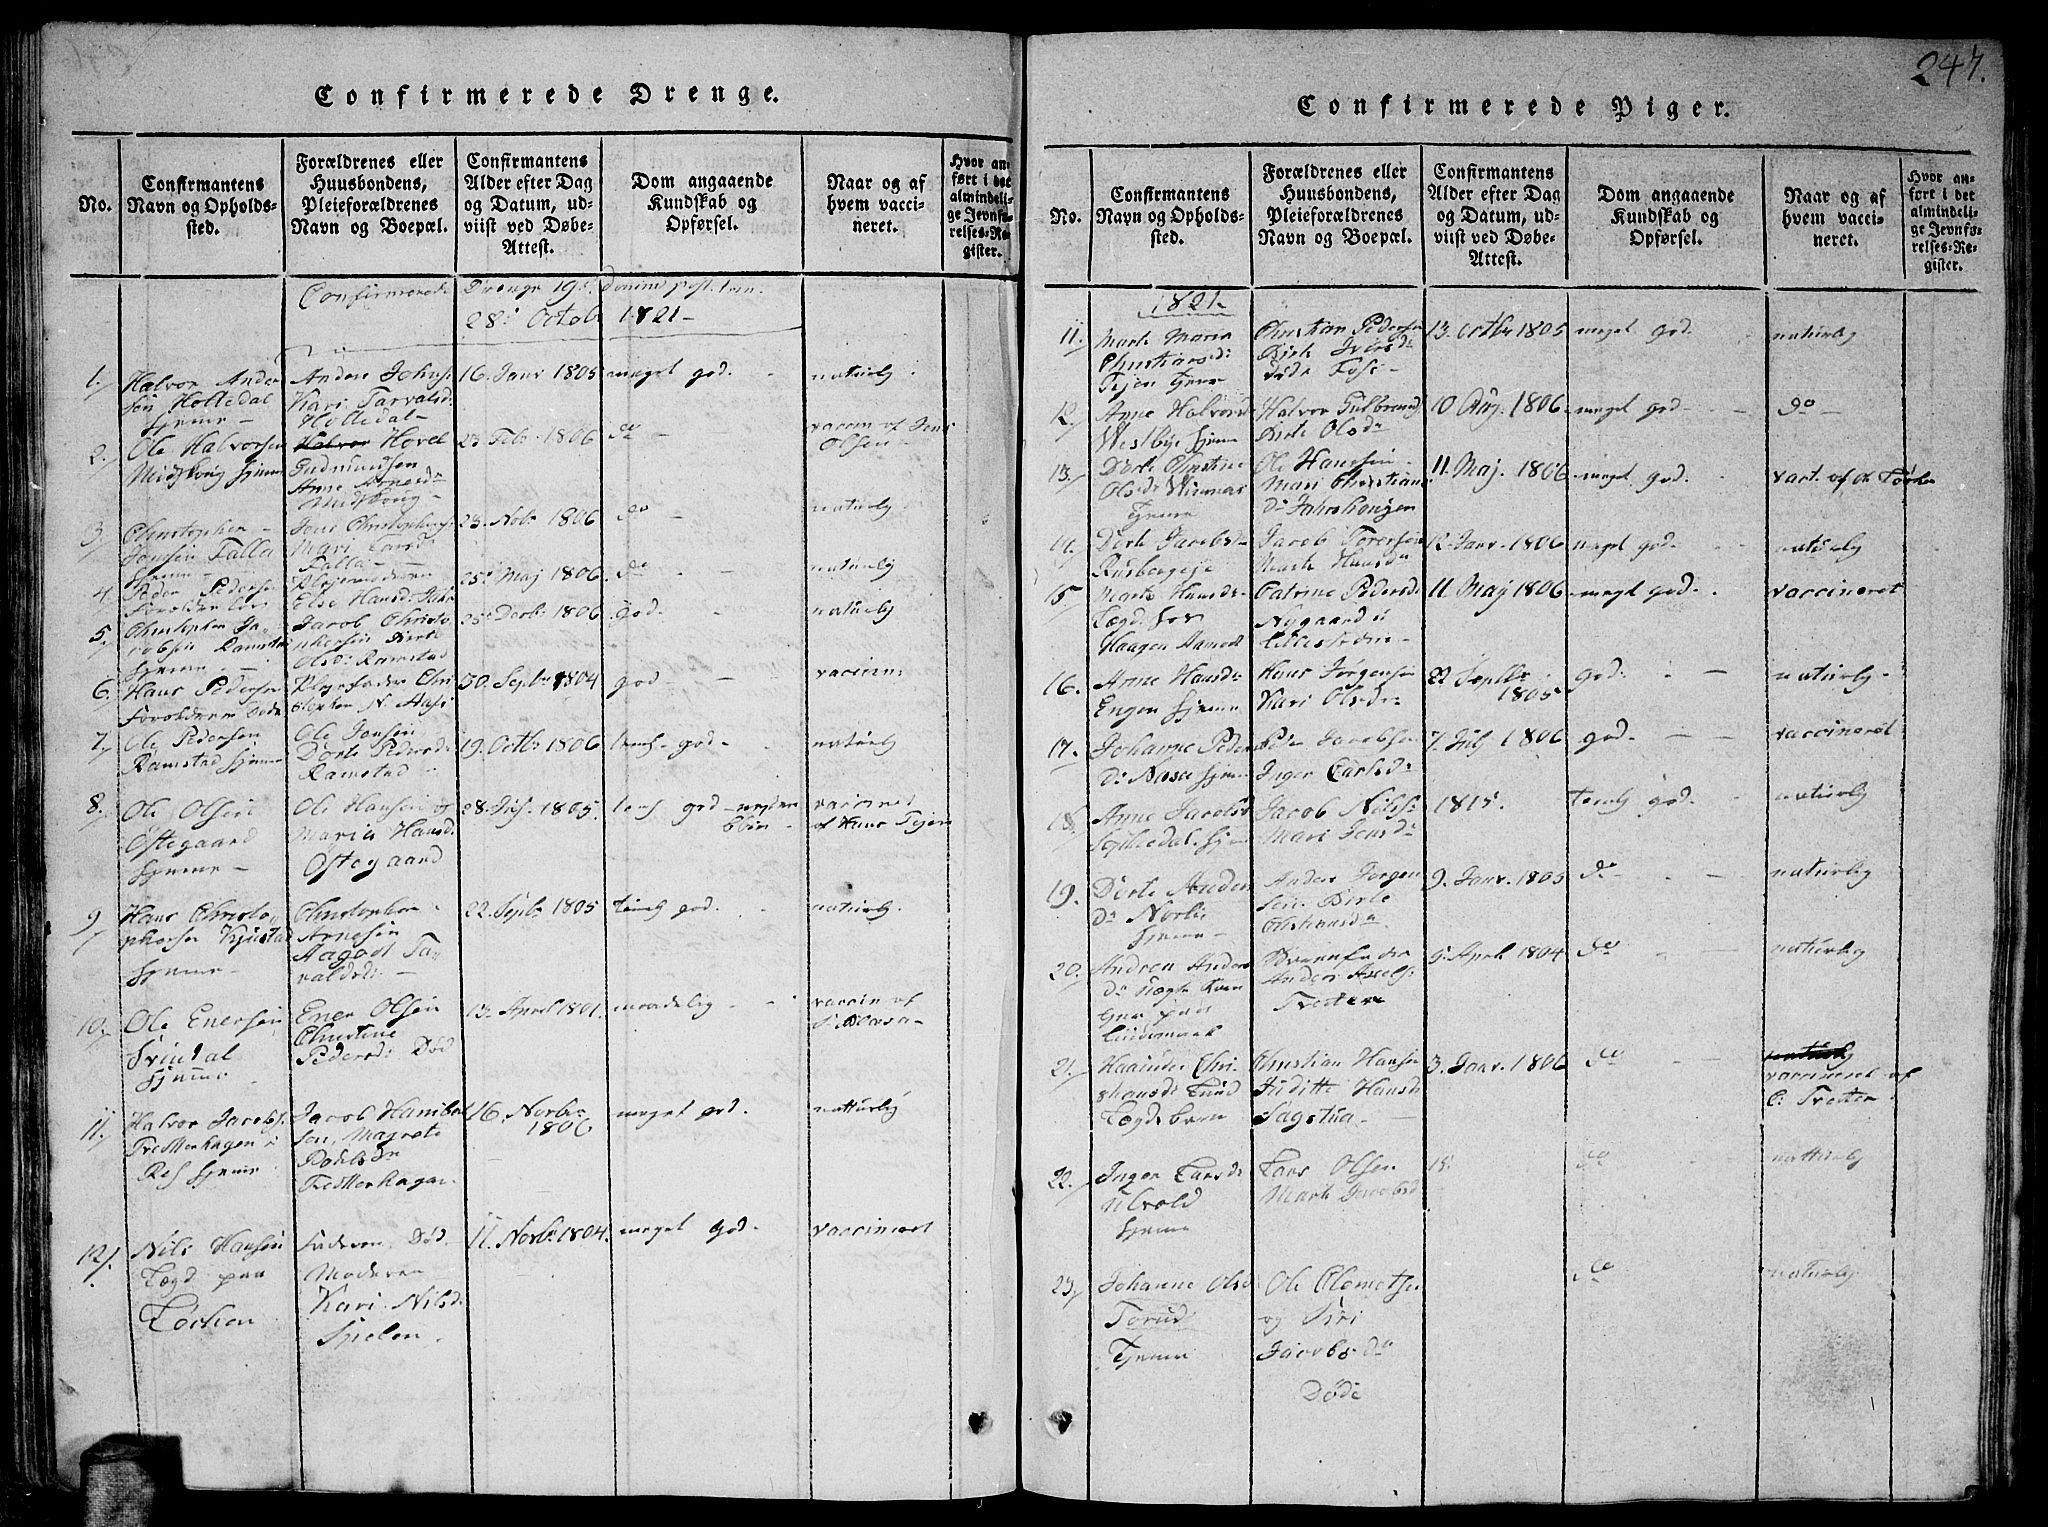 Confirmerede Drenge.
No.
Confirmantens
Navn og Opholds-
sted.
Forældrenes eller
Huusbondens,
Pleieforældrenes
Navn og Boepæl.
Confirmantens
Alder efter Dag
og Datum, ud-
viist ved Døbe-
Attest.
Dom angaaende
Kundskab og
Opførsel.
Naar og af
hvem vacci-
neret.
Hvor an-
ført i det
almindeli-
ge Jevnfø-
relses-Re-
gister.
Confirmerede Drenge 19. post trin.
28. Octob 1821
1. Halvor Ander
sen Holledal
hjeme
Anders Johns.
Kari Tarvalsd.
Holledal
16. Janr 1805 meget god. naturlig.
2. Ole Halvorsen
Midskoug hjeme
Halvor Hovel
Gudmundsen
Anne Arnesd.
Midskoug
23. Febr 1806 do vaccin af Jens
Olsen
3. Christopher
Jensen Falla
hjeme
Jens Christophers.
Mari Larsd.
Falla
23. Nobr 1806 do naturlig
4. Peder Pedersen
Plejemoderen
Else Hansd.
25. Maj 1806. do naturlig
5. Christopher Ja-
cobsen Ramstad
hjeme
Jacob Christo
phersen Birte
Olsd. Ramstad
25. Decb. 1806 god. naturlig
6. Hans Pedersen
Forældrene Døde
Plejefader Chri
stopher N. Aas
30. Septbr 1804 god vaccin.
7. Ole Pedersen
Ramstad hjeme
Ole Jensen
Dorte Pedersd.
Ramstad
19. Octbr 1806 temlig god. naturlig
8. Ole Olsen
Østegaard
hjeme
Ole Hansen og
Maria Hansd.
Østegaard
28. Jul. 1805. temlig god vaccinet
af Hans Tejen
9. Hans Christo
phersen Kjustad
hjeme
Christopher
Arnesen
Aagodt Ta-
valdsd.
22. Septbr 1805 temlig god. naturlig.
10. Ole Enersen
Svindal
hjeme
Ener Olsen
Christine
Pedersd. Død
13. April 1801. maadelig vaccin af
11. Halvor Jacobs.
Fredterhagen i
hjeme
Jacob Hanibal
sen, Magrete
Fredterhagen.
16. Novbr
1806 meget god. natturlig
12. Nils Hansen
Lægd paa
Løcken
Faderen Død.
Moderen
Kari Nilsd.
Spelen.
11. Novbr 1804. meget god. vaccineret
247.
Confirmerede Piger.
No.
Confirmantens
Navn og Opholds-
sted.
Forældrenes eller
Huusbondens,
Pleieforældrenes
Navn og Boepæl.
Confirmantens
Alder efter Dag
og Datum, ud-
viist ved Døbe-
Attest.
Dom angaaende
Kundskab og
Opførsel.
Naar og af
hvem vacci-
neret.
Hvor an-
ført i det
almindeli-
ge Jevnfø-
relses-Re-
gister.
1821
11. Marte Maria
Christiansd.
Tejen hjeme
Christian Pedersen
Birte Iversd.
døde Fosse
13. Octbr 1805 meget god. naturlig
12. Anne Halvorsd
Westbye hjeme
Halvor Gulbrands.
Birte Olsd.
10 Aug. 1806 meget god do
13. Dorte Christine
Olsd. Winnes
hjeme
Ole Hansen
Mari Christians
d.
11. Maj. 1806 meget god
14. Dorte Jacobsd.
Rusbergeje
Jacob Torersen
Marte Hansd.
12. Janr. 1806 meget god. naturlig
15. Marte Hansd.
Lægd hos
Haagen Aamodt
Catrine Pedersd.
Nygaard i
11. Maj 1806 meget god. vaccineret
16. Anne Hansd.
Engen hjeme
Hans Jørgensen
Kari Olsd.
22 Septbr
1805 god. naturlig
17. Johanne Peder
d. Næse hjeme
Peder Jacobsen
Inger Carlsd.
7. Julj 1806 god. vaccineret
18. Anne Jacobsd
hjem
Jacob Nilss.
Mari Jensd.
1815. temlig god. naturlig
19. Dorte Anders
d. Norbie
hjeme
Anders Jørgen
sen. Birte
Christiansd.
9. Janr. 1805 do naturlig
20. Andrea Anders
d.
Anders Axels.
Trester
5. April 1804 do naturlig
21. Chri
stiansd. Lund
Lægdsbarn
Christian Hansen
Juditte Hansd
Sagstua
3. Janr. 1806 do naturlig
vaccineret af
C. Trester
22. Inger Larsd.
Ulvold
hjeme
Lars Olsen
Marte Jacobsd
15 do natturlig
23. Johanne Olsd
Torud
hjeme
Ole Clemetsen
og Siri
Jacobsd.
Døde
do naturlig